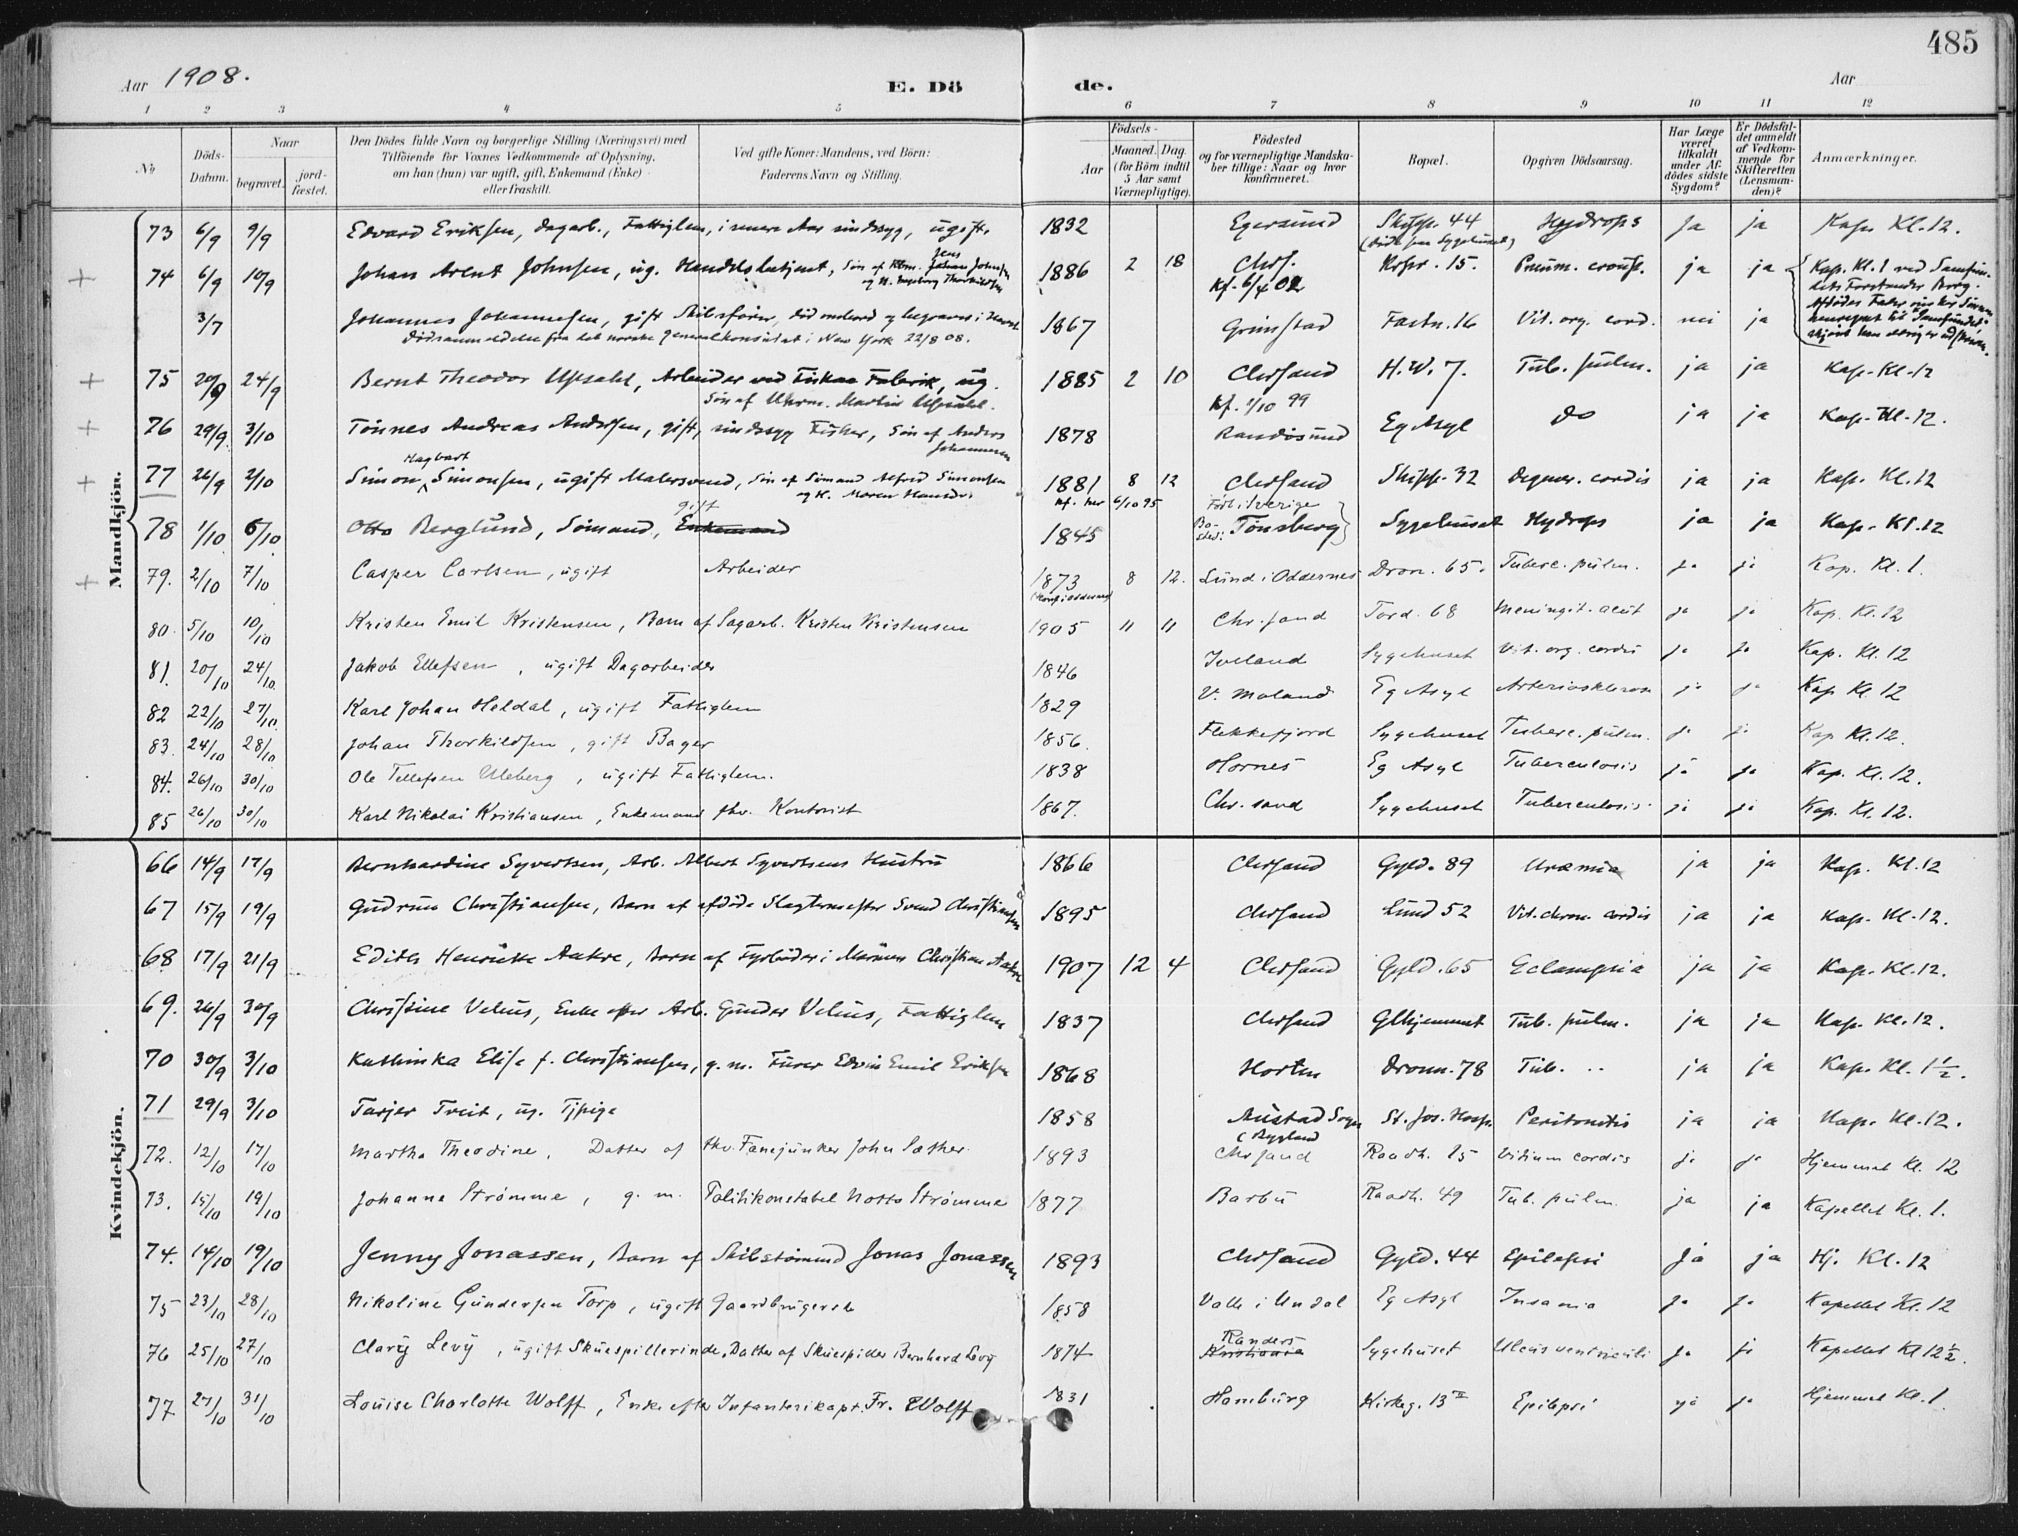 485
Aar 1908.
E. Dö de.
Aar
1 2 3 4 5 6 7 8 9 10 11 12
No
Döds-Datum.
Naar
begravet.
jord-fæstet.
Den Dödes fulde Navn og borgerlige Stilling (Næringsvei) med
Tilföiende for Voxnes Vedkommende af Oplysning,
om han (hun) var ugift, gift, Enkemand (Enke)
eller fraskilt.
Ved gifte Koner: Mandens, ved Börn:
Faderens Navn og Stilling.
Födsels-
Aar
Maaned. Dag.
(for Börn indtil
5 Aar samt
Værnepligtige).
Födested
og for værnepligtige Mandska-
ber tillige: Naar og hvor
konfirmeret.
Bopæl.
Opgiven Dödsaarsag.
Har Læge
været
tilkaldt
under Af-
dödes sidste
Sygdom?
Er Dödsfal-
det anmeldt
af Vedkom-
mende for
Skifteretten
(Lensman-
den)?
Anmærkninger.
Mandkjön.
73 6/9 9/9 Edvard Eriksen, dagarb., Fattiglem, i senere Aar sindssyg, ugift. 1832 Egersund Skipp. 44 Hydrops ja ja Kap. Kl. 12.
+ 74 6/9 10/9 Johan Arent Johnsen, ug. Handelsbetjent, Søn af 1886 2 18 Chrs. 15. Pneum. croup. ja ja Kap. Kl. 1 ved
Kf. 6/4 02
3/7 Johannes Johannesen, gift Skibsfører, død ombord og begravet i 1867 Grimstad Fastn. 16 Vit. org. cord. nei ja
Dødsanmeldelse fra det norske Generalkonsulat i New York 22/8 08.
+ 75 20/9 24/9 Bernt Theodor Upsahl, Arbeider ved Fabrik, ug. 1885 2 10 Chrsand H.W. 7. Tub. pulm. ja ja Kap. Kl. 12
Søn af Martin Upsahl. Kf. 1/10 99
+ 76 29/9 3/10 Tönnes Andreas Andersen, gift, sindssyg Fisker, Søn af Anders Johannesen 1878 Randøsund Eg Asyl do ja ja Kap. Kl. 12.
+ 77 26/9 2/10 Simon Hagbart Simonsen, ugift Malersvend, Søn af Sömand Alfred Simonsen 1881 8 12 Chrsand Skipp. 32 Degener. cordis ja ja Kap. Kl. 12
og H. Maren Hansdr. Kf. her 6/10 95
78 1/10 6/10 Otto Berglund, Sømand, gift Enkemand 1845 Født i Sverige Bo-sted: Tönsberg Sygehuset Hydrops ja ja Kap. Kl. 12
+ 79. 2/10 7/10 Casper Carlsen, ugift Arbeider 1873 8 12. Lund i Oddernes Dron. 65. Tuberc. pulm. ja ja Kap. Kl. 1.
80. 5/10 10/10 Kristen Emil Kristensen, Barn af Sagarb. Kristen Kristensen 1905 11 11 Chr.sand Tord. 68 Meningit. acut ja ja Kap. Kl. 12
81. 20/10 24/10. Jakob Ellefsen, ugift Dagarbeider 1846 Iveland Sygehuset Vit. org. cordis ja ja Kap. Kl. 12
82 22/10 27/10. Karl Johan Heldal, ugift Fattiglem 1829 V. Moland Eg Asyl Arterioskleros ja ja Kap. Kl. 12
83. 24/10 28/10 Johan Thorkildsen, gift Bager 1856. Flekkefjord Sygehuset Tuberc. pulm. ja ja Kap. Kl. 12.
84. 26/10 30/10 Ole Tellefsen Uleberg, ugift Fattiglem. 1838 Hornes Eg Asyl Tuberculosis ja ja Kap. Kl. 12.
85 26/10 30/10 Karl Nikolai Kristiansen, Enkemand fhv. Kontorist 1867. Chr.sand Sygehuset Tuberculosis. ja ja Kap. Kl. 12.
Kvindekjön.
66 14/9 17/9 Bernhardine Syvertsen, Arb. Albert Syvertsens Hustru 1866 Chrsand Gyld. 89 Uræmia ja ja Kap. Kl. 12
67 15/9 19/9 Gudrun Christiansen, Barn af afdøde Slagtermester Svend Christiansen 1895 Chrsand Lund 52 Vit. chron. cordis ja ja Kap. Kl. 12.
68 17/9 21/9 Edith Henriette Aakre, Barn af Fyrbøder i Marinen Christian Aakre 1907 12 4 Chrsand Gyld. 65 Eclampsia ja ja Kap. Kl. 12.
69. 26/9 30/9 Christine Veleus, Enke efter Arb. Gunder Veleus, Fattiglem 1837 Chrsand Glhjemmet Tub. pulm. ja ja Kap. Kl. 12.
70 30/9 3/10 Kathinka Elise f. Christiansen, g. m. Furer Edvin Emil Eriksen 1868 Horten Dronn. 78 Tub. " ja ja Kap. Kl. 1 1/2.
71 29/9 3/10 Tarjer Treit, ug. Tjpige 1858 Austad Sogn St. Jos. Hosp. Peritonitis ja ja Kap. Kl. 12.
( Bygland
72. 12/10 17/10 Martha Theodine, Datter af fhv. Fanejunker John Sæther 1893 Chrsand Raadh. 25 Vitium cordis ja ja Hjemmet Kl. 12
73. 15/10 19/10 Johanne Strømme, g. m. Politikonstabel Notto Strømme 1877 Barbu Raadh. 49 Tub. pulm. ja ja Kapellet Kl. 1.
74. 14/10 19/10 Jenny Jonassen, Barn af Skibstømmd Jonas Jonassen 1893 Chrsand Gyld. 44 Epilepsi ja ja Hj. Kl. 12
75 23/10 28/10 Nikoline Gundersen Torp, ugift Gaardbrugersk 1858 Valle i Undal Eg Asyl Insania ja ja Kapellet Kl. 12
76 25/10 27/10 Clary Levy, ugift Skuespillerinde, Datter af Skuespiller Bernhard Levy 1874 Randers Kristiania Sygehuset Ulcus ventriculi ja ja Kapellet Kl 12 1/2.
77 27/10 31/10 Louise Charlotte Wolff, Enke efter Infanterikapt. Fr. Wolff 1831 Hamburg Kirkeg. 13 II Epilepsi ja ja Hjemmet Kl. 1.